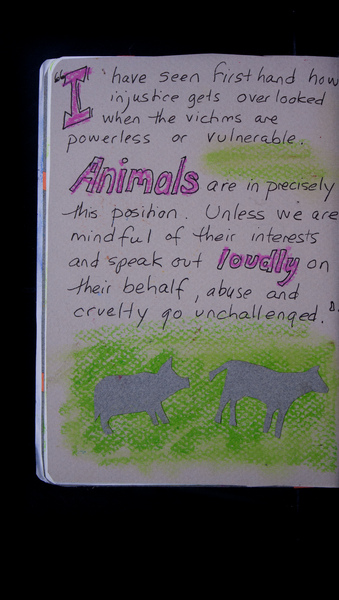 "I have seen firsthand how
injustice gets overlooked
when the victims are
powerless or vulnerable.
Animals are in precisely
this position. Unless we are
mindful of their interests
and speak out loudly on
their behalf, abuse and
cruelty go unchallenged."